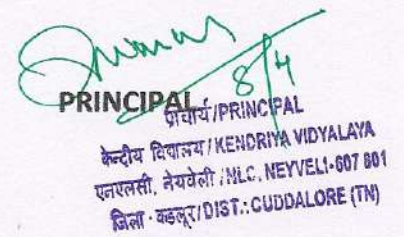 8/4
PRINCIPAL
प्राचार्य/PRINCIPAL
केन्द्रीय विद्यालय/KENDRIYA VIDYALAYA
एनएलसी, नेयवेली/NLC, NEYVELI-607 801
जिला - कडलूर/DIST.: CUDDALORE (TN)